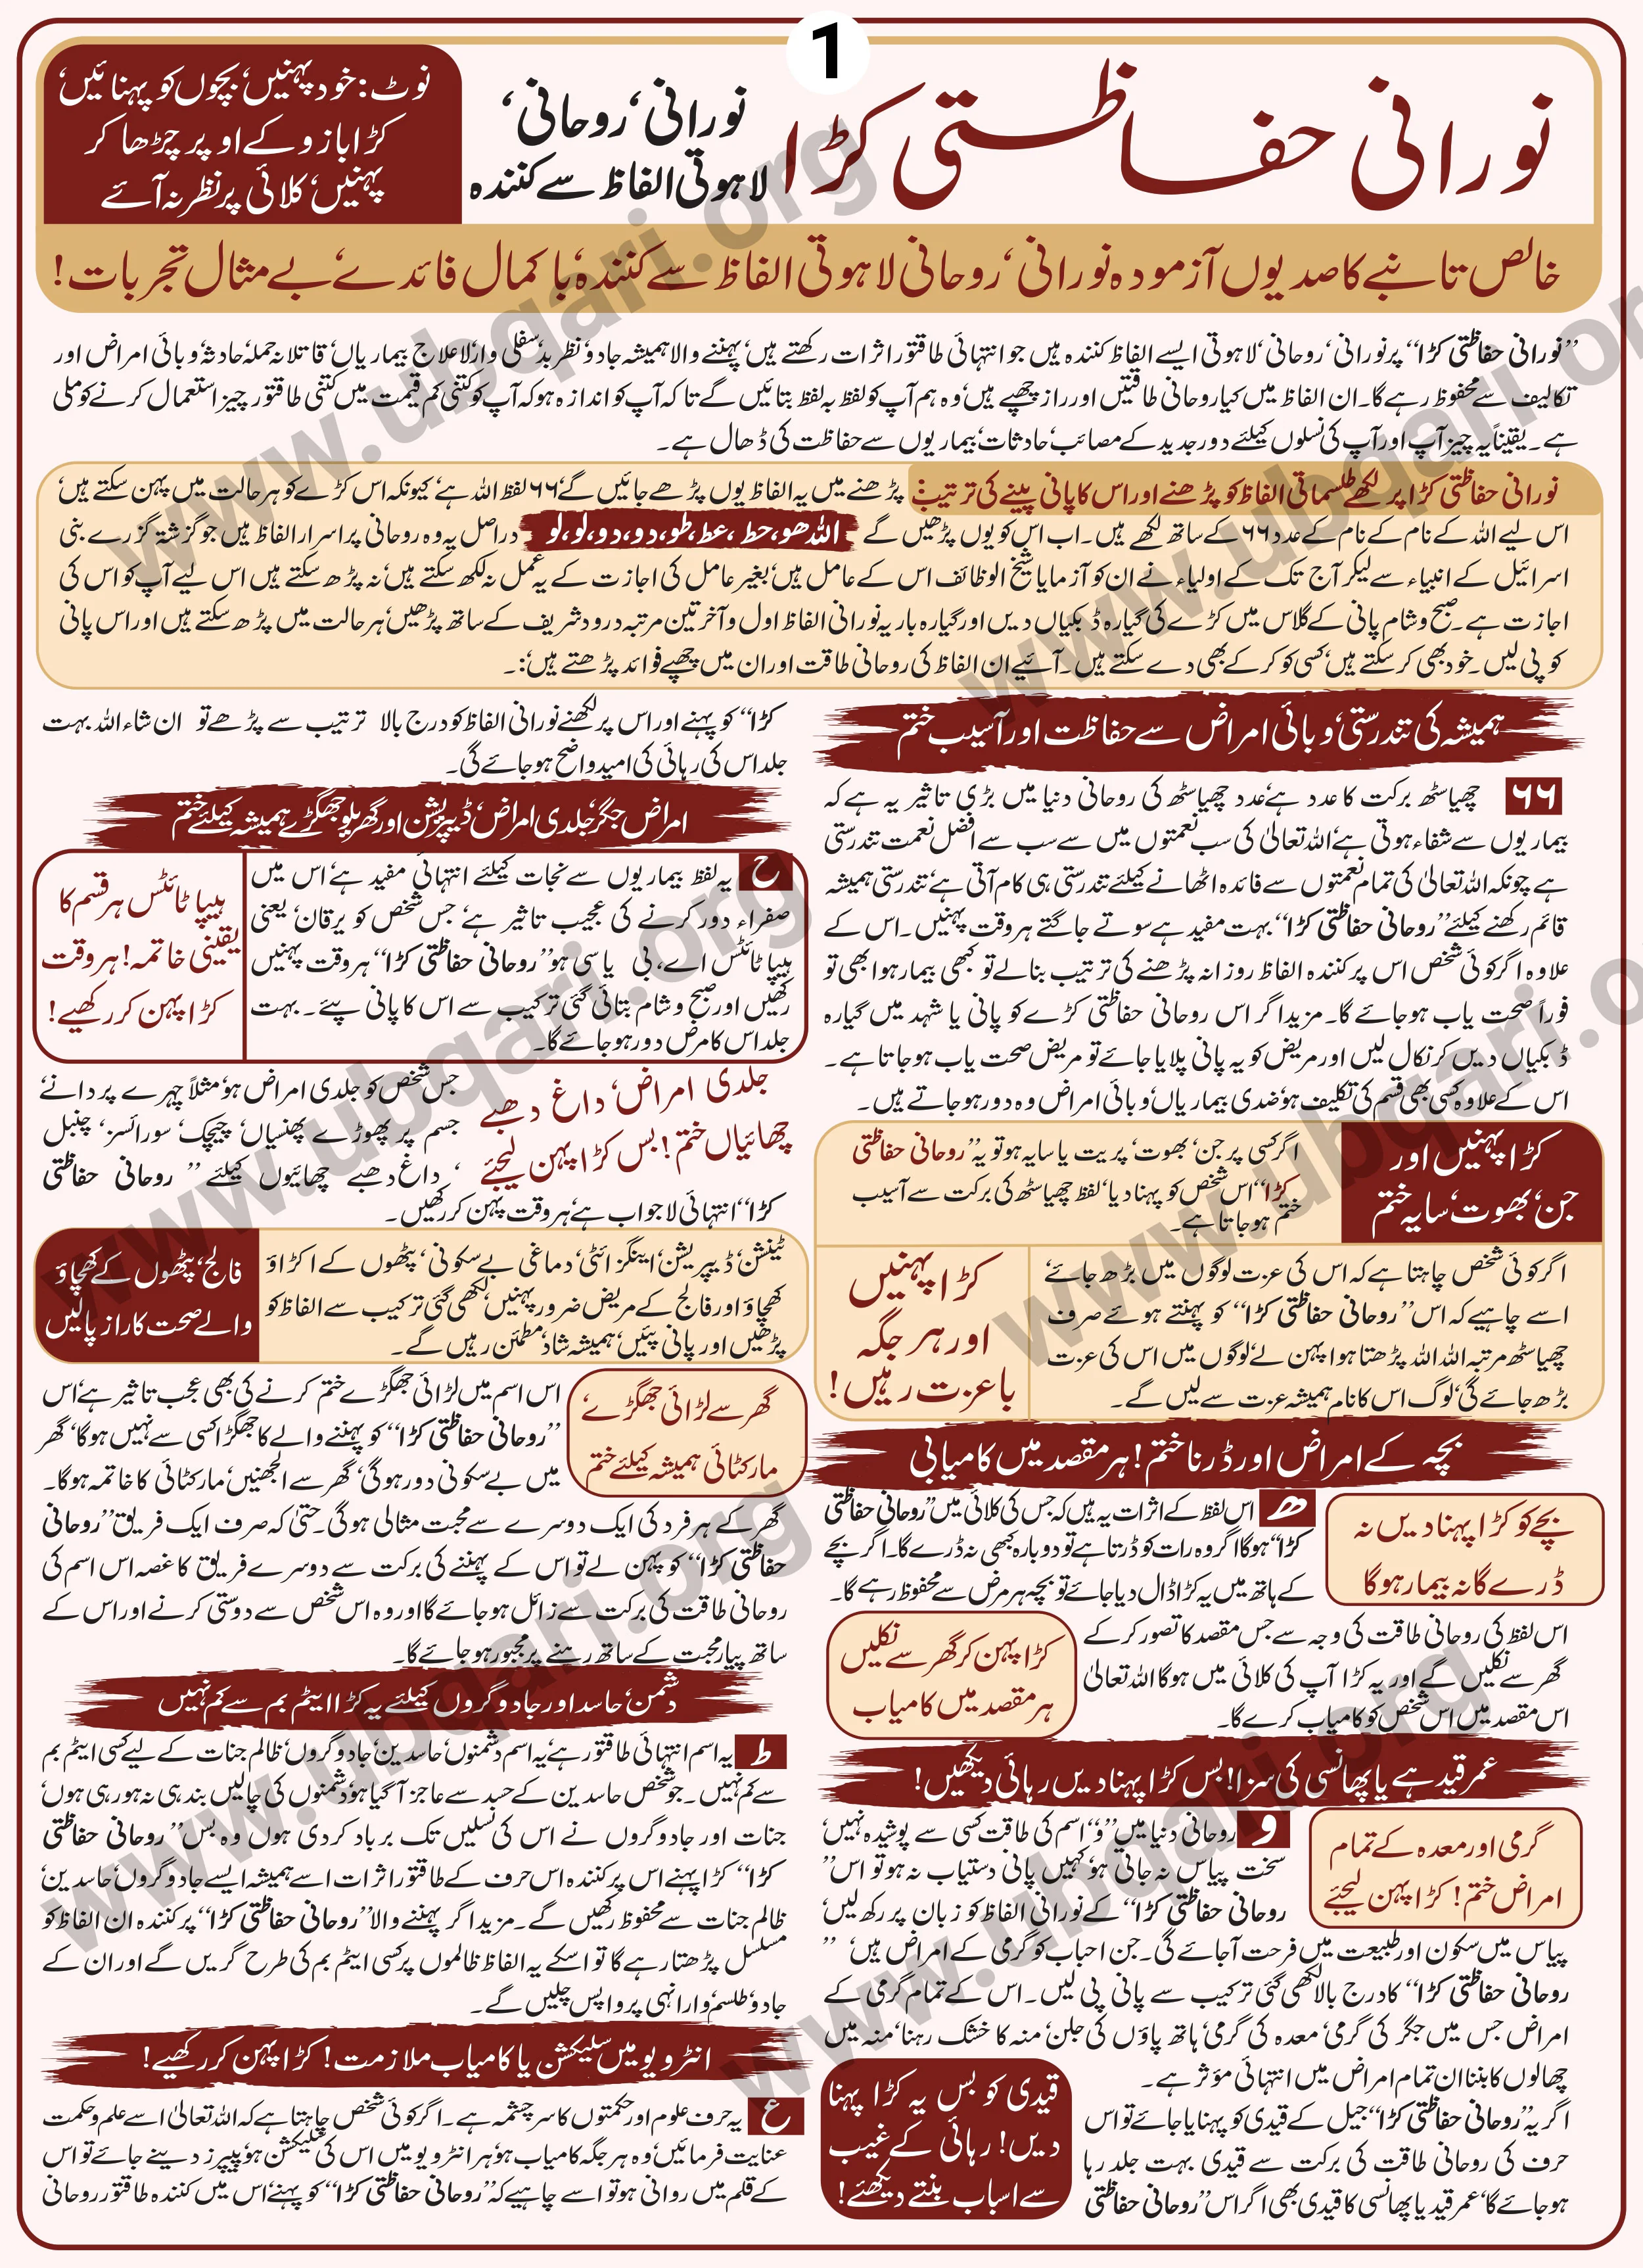 1
نورانی حفاظتی کڑا
نورانی‘ روحانی‘
لاہوتی الفاظ سے کنندہ
نوٹ: خود پہنیں‘ بچوں کو پہنائیں‘
کڑا بازو کے اوپر چڑھا کر
پہنیں‘ کلائی پر نظر نہ آئے
خالص تانبے کا صدیوں آزمودہ نورانی‘ روحانی لاہوتی الفاظ سے کنندہ‘ باکمال فائدے‘ بے مثال تجربات!
’’نورانی حفاظتی کڑا‘‘ پر نورانی‘ روحانی‘ لاہوتی ایسے الفاظ کنندہ ہیں جو انتہائی طاقتور اثرات رکھتے ہیں‘ پہننے والا ہمیشہ جادو‘ نظربد‘ سفلی وار‘ لاعلاج بیماریاں‘ قاتلانہ حملہ‘ حادثہ‘ وبائی امراض اور
تکالیف سے محفوظ رہے گا۔ ان الفاظ میں کیا روحانی طاقتیں اور راز چھپے ہیں‘ وہ ہم آپ کو لفظ بہ لفظ بتائیں گے تاکہ آپ کو اندازہ ہو کہ آپ کو کتنی کم قیمت میں کتنی طاقتور چیز استعمال کرنے کو ملی
ہے۔ یقیناً یہ چیز آپ اور آپ کی نسلوں کیلئے دور جدید کے مصائب‘ حادثات‘ بیماریوں سے حفاظت کی ڈھال ہے۔
نورانی حفاظتی کڑا پر لکھے طلسماتی الفاظ کو پڑھنے اور اس کا پانی پینے کی ترتیب: پڑھنے میں یہ الفاظ یوں پڑھے جائیں گے‘ ۶۶ لفظ اللہ ہے‘ کیونکہ اس کڑے کو ہر حالت میں پہن سکتے ہیں‘
اس لیے اللہ کے نام کے نام کے عدد ۶۶ کے ساتھ لکھے ہیں۔ اب اس کو یوں پڑھیں گے اللہ ھو، حط، عط، طو، دو، دو، لو، لو دراصل یہ وہ روحانی پراسرار الفاظ ہیں جو گزشتہ گزرے بنی
اسرائیل کے انبیاء سے لیکر آج تک کے اولیاء نے ان کو آزمایا شیخ الوظائف اس کے عامل ہیں‘ بغیر عامل کی اجازت کے یہ عمل نہ لکھ سکتے ہیں‘ نہ پڑھ سکتے ہیں اس لیے آپ کو اس کی
اجازت ہے۔ صبح و شام پانی کے گلاس میں کڑے کی گیارہ ڈبکیاں دیں اور گیارہ بار یہ نورانی الفاظ اول و آخر تین مرتبہ درود شریف کے ساتھ پڑھیں‘ ہر حالت میں پڑھ سکتے ہیں اور اس پانی
کو پی لیں۔ خود بھی کر سکتے ہیں‘ کسی کو کر کے بھی دے سکتے ہیں۔ آئیے ان الفاظ کی روحانی طاقت اور ان میں چھپے فوائد پڑھتے ہیں:۔
ہمیشہ کی تندرستی‘ وبائی امراض سے حفاظت اور آسیب ختم
۶۶ چھیاسٹھ برکت کا عدد ہے‘ عدد چھیاسٹھ کی روحانی دنیا میں بڑی تاثیر یہ ہے کہ
بیماریوں سے شفاء ہوتی ہے‘ اللہ تعالیٰ کی سب نعمتوں میں سے سب سے افضل نعمت تندرستی
ہے چونکہ اللہ تعالیٰ کی تمام نعمتوں سے فائدہ اٹھانے کیلئے تندرستی ہی کام آتی ہے‘ تندرستی ہمیشہ
قائم رکھنے کیلئے ’’روحانی حفاظتی کڑا‘‘ بہت مفید ہے سوتے جاگتے ہر وقت پہنیں۔ اس کے
علاوہ اگر کوئی شخص اس پر کنندہ الفاظ روزانہ پڑھنے کی ترتیب بنالے تو کبھی بیمار ہوا بھی تو
فوراً صحت یاب ہوجائے گا۔ مزید اگر اس روحانی حفاظتی کڑے کو پانی یا شہد میں گیارہ
ڈبکیاں دیں کر نکال لیں اور مریض کو یہ پانی پلایا جائے تو مریض صحت یاب ہوجاتا ہے۔
اس کے علاوہ کسی بھی قسم کی تکلیف ہو‘ ضدی بیماریاں‘ وبائی امراض وہ دور ہوجاتے ہیں۔
کڑا پہنیں اور
جن‘ بھوت‘ سایہ ختم
اگر کسی پر جن‘ بھوت‘ پریت یا سایہ ہو تو یہ ’’روحانی حفاظتی
کڑا‘‘ اس شخص کو پہنا دیا‘ لفظ چھیاسٹھ کی برکت سے آسیب
ختم ہوجاتا ہے۔
کڑا پہنیں
اور ہر جگہ
باعزت رہیں!
اگر کوئی شخص چاہتا ہے کہ اس کی عزت لوگوں میں بڑھ جائے‘
اسے چاہیے کہ اس ’’روحانی حفاظتی کڑا‘‘ کو پہنتے ہوئے صرف
چھیاسٹھ مرتبہ اللہ اللہ پڑھتا ہوا پہن لے‘ لوگوں میں اس کی عزت
بڑھ جائے گی‘ لوگ اس کا نام ہمیشہ عزت سے لیں گے۔
بچہ کے امراض اور ڈرنا ختم! ہر مقصد میں کامیابی
بچے کو کڑا پہنا دیں نہ
ڈرے گا نہ بیمار ہوگا
ھ اس لفظ کے اثرات یہ ہیں کہ جس کی کلائی میں ’’روحانی حفاظتی
کڑا‘‘ ہوگا اگر وہ رات کو ڈرتا ہے تو دوبارہ کبھی نہ ڈرے گا۔ اگر بچے
کے ہاتھ میں یہ کڑا ڈال دیا جائے تو بچہ ہر مرض سے محفوظ رہے گا۔
کڑا پہن کر گھر سے نکلیں
ہر مقصد میں کامیاب
اس لفظ کی روحانی طاقت کی وجہ سے جس مقصد کا تصور کر کے
گھر سے نکلیں گے اور یہ کڑا آپ کی کلائی میں ہوگا اللہ تعالیٰ
اس مقصد میں اس شخص کو کامیاب کرے گا۔
عمر قید ہے یا پھانسی کی سزا! بس کڑا پہنا دیں رہائی دیکھیں!
گرمی اور معدہ کے تمام
امراض ختم! کڑا پہن لیجئے
و روحانی دنیا میں ’’و‘‘ اسم کی طاقت کسی سے پوشیدہ نہیں‘
سخت پیاس نہ جاتی ہو‘ کہیں پانی دستیاب نہ ہو تو اس ’’
روحانی حفاظتی کڑا‘‘ کے نورانی الفاظ کو زبان پر رکھ لیں‘
پیاس میں سکون اور طبیعت میں فرحت آجائے گی۔ جن احباب کو گرمی کے امراض ہیں‘ ’’
روحانی حفاظتی کڑا‘‘ کا درج بالا لکھی گئی ترکیب سے پانی پی لیں۔ اس کے تمام گرمی کے
امراض جس میں جگر کی گرمی‘ معدہ کی گرمی‘ ہاتھ پاؤں کی جلن‘ منہ کا خشک رہنا‘ منہ میں
چھالوں کا بننا ان تمام امراض میں انتہائی مؤثر ہے۔
قیدی کو بس یہ کڑا پہنا
دیں! رہائی کے غیب
سے اسباب بنتے دیکھئے!
اگر یہ ’’روحانی حفاظتی کڑا‘‘ جیل کے قیدی کو پہنایا جائے تو اس
حرف کی روحانی طاقت کی برکت سے قیدی بہت جلد رہا
ہوجائے گا‘ عمر قید یا پھانسی کا قیدی بھی اگر اس ’’روحانی حفاظتی
کڑا‘‘ کو پہنے اور اس پر لکھنے نورانی الفاظ کو درج بالا ترتیب سے پڑھے تو ان شاء اللہ بہت
جلد اس کی رہائی کی امید واضح ہوجائے گی۔
امراض جگر‘ جلدی امراض‘ ڈیپریشن اور گھریلو جھگڑے ہمیشہ کیلئے ختم
ہیپاٹائٹس ہر قسم کا
یقینی خاتمہ! ہر وقت
کڑا پہن کر رکھیے!
ح یہ لفظ بیماریوں سے نجات کیلئے انتہائی مفید ہے‘ اس میں
صفراء دور کرنے کی عجیب تاثیر ہے‘ جس شخص کو یرقان‘ یعنی
ہیپاٹائٹس اے، بی یا سی ہو ’’روحانی حفاظتی کڑا‘‘ ہر وقت پہنیں
رکھیں اور صبح و شام بتائی گئی ترکیب سے اس کا پانی پیئے۔ بہت
جلد اس کا مرض دور ہوجائے گا۔
جلدی امراض‘ داغ دھبے
چھائیاں ختم! بس کڑا پہن لیجئے
جس شخص کو جلدی امراض ہو‘ مثلاً چہرے پر دانے‘
جسم پر پھوڑے پھنسیاں‘ چیچک‘ سورائسز‘ چنبل
‘ داغ دھبے چھائیوں کیلئے ’’ روحانی حفاظتی
کڑا‘‘ انتہائی لاجواب ہے‘ ہر وقت پہن کر رکھیں۔
فالج‘ پٹھوں کے کھچاؤ
والے صحت کا راز پالیں
ٹینشن‘ ڈیپریشن‘ اینگزائٹی‘ دماغی بے سکونی‘ پٹھوں کے اکڑاؤ
کھچاؤ اور فالج کے مریض ضرور پہنیں‘ لکھی گئی ترکیب سے الفاظ کو
پڑھیں اور پانی پئیں‘ ہمیشہ شاد‘ مطمئن رہیں گے۔
گھر سے لڑائی جھگڑے‘
مارکٹائی ہمیشہ کیلئے ختم
اس اسم میں لڑائی جھگڑے ختم کرنے کی بھی عجب تاثیر ہے‘ اس
’’روحانی حفاظتی کڑا‘‘ کو پہننے والے کا جھگڑا کسی سے نہیں ہوگا‘ گھر
میں بے سکونی دور ہوگی‘ گھر سے الجھنیں‘ مارکٹائی کا خاتمہ ہوگا۔
گھر کے ہر فرد کی ایک دوسرے سے محبت مثالی ہوگی۔ حتیٰ کہ صرف ایک فریق ’’روحانی
حفاظتی کڑا‘‘ کو پہن لے تو اس کے پہننے کی برکت سے دوسرے فریق کا غصہ اس اسم کی
روحانی طاقت کی برکت سے زائل ہوجائے گا اور وہ اس شخص سے دوستی کرنے اور اس کے
ساتھ پیار محبت کے ساتھ رہنے پر مجبور ہوجائے گا۔
دشمن‘ حاسد اور جادوگروں کیلئے یہ کڑا ایٹم بم سے کم نہیں
ط یہ اسم انتہائی طاقتور ہے‘ یہ اسم دشمنوں‘ حاسدین‘ جادوگروں‘ ظالم جنات کے لیے کسی ایٹم بم
سے کم نہیں۔ جو شخص حاسدین کے حسد سے عاجز آگیا ہو‘ دشمنوں کی چالیں بند ہی نہ ہو رہی ہوں‘
جنات اور جادوگروں نے اس کی نسلیں تک برباد کردی ہوں وہ بس ’’روحانی حفاظتی
کڑا‘‘ کڑا پہنے اس پر کنندہ اس حرف کے طاقتور اثرات اسے ہمیشہ ایسے جادوگروں‘ حاسدین‘
ظالم جنات سے محفوظ رکھیں گے۔ مزید اگر پہننے والا ’’روحانی حفاظتی کڑا‘‘ پر کنندہ ان الفاظ کو
مسلسل پڑھتا رہے گا تو اسکے یہ الفاظ ظالموں پر کسی ایٹم بم کی طرح گریں گے اور ان کے
جادو‘ طلسم‘ وار انہی پر واپس چلیں گے۔
انٹرویو میں سلیکشن یا کامیاب ملازمت! کڑا پہن کر رکھیے!
ع یہ حرف علوم اور حکمتوں کا سرچشمہ ہے۔ اگر کوئی شخص چاہتا ہے کہ اللہ تعالیٰ اسے علم و حکمت
عنایت فرمائیں‘ وہ ہر جگہ کامیاب ہو‘ ہر انٹرویو میں اس کی سلیکشن ہو‘ پیپرز دینے جائے تو اس
کے قلم میں روانی ہو تو اسے چاہیے کہ ’’روحانی حفاظتی کڑا‘‘ کو پہنے‘ اس میں کنندہ طاقتور روحانی
www.ubqari.org
www.ubqari.org
www.ubqari.org
www.ubqari.org
www.ubqari.org
www.ubqari.org